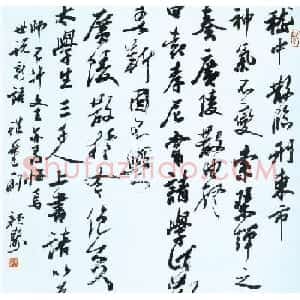 嵇中散臨刑東市
神氣不變索琴彈之
奏廣陵散曲終
曰袁孝尼嘗請學此散
吾靳固不與
廣陵散於今絕矣
太學生三千人上書請以為
師不許文王亦尋悔焉
世說新語 雅量一則
Shufaziliao.com